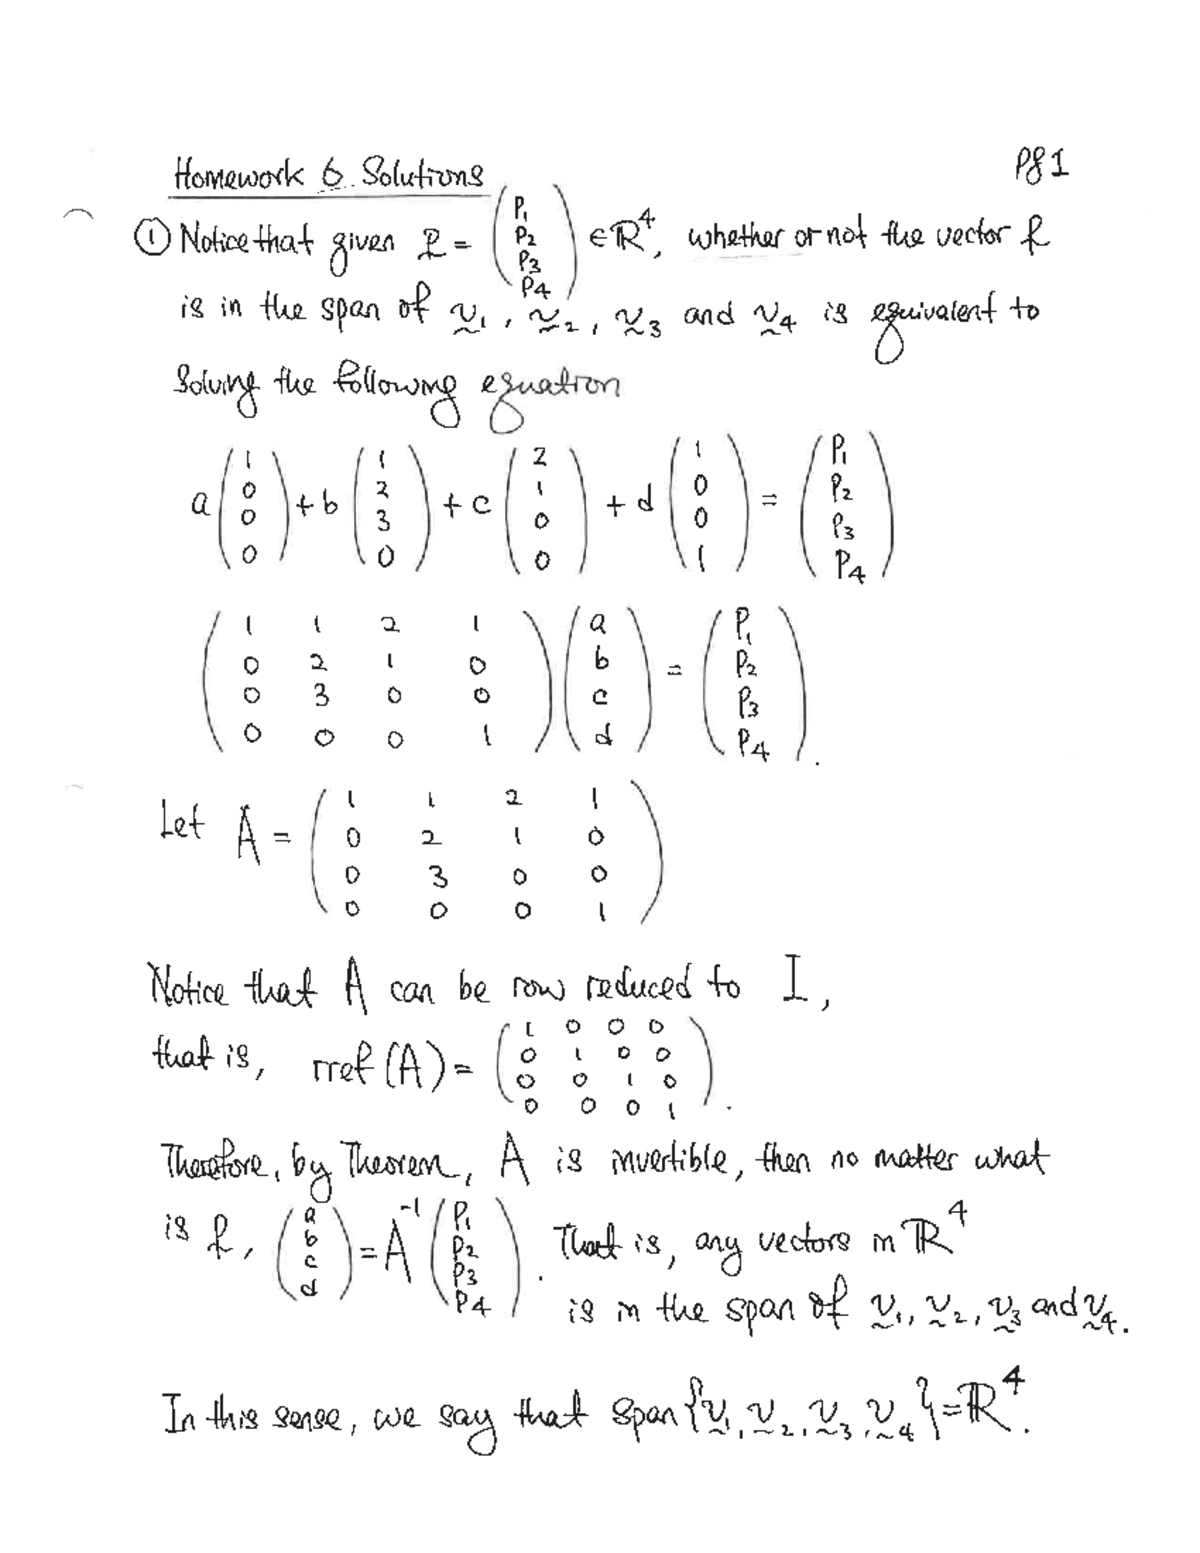 Homework 6 Solutions
Pg 1
① Notice that given p = (P1 P2 P3 P4) ∈ ℝ^4, whether or not the vector p
is in the span of v1, v2, v3 and v4 is equivalent to
Solving the following equation
a (1 0 0 0) + b (1 2 3 0) + c (2 1 0 0) + d (1 0 0 1) = (P1 P2 P3 P4)
(1 1 2 1
0 2 1 0
0 3 0 0
0 0 0 1) (a b c d) = (P1 P2 P3 P4).
Let A = (1 1 2 1
0 2 1 0
0 3 0 0
0 0 0 1)
Notice that A can be row reduced to I,
that is, rref(A) = (1 0 0 0
0 1 0 0
0 0 1 0
0 0 0 1).
Therefore, by Theorem, A is invertible, then no matter what
is p, (a b c d) = A^-1 (P1 P2 P3 P4). That is, any vectors in ℝ^4
is in the span of v1, v2, v3 and v4.
In this sense, we say that span{v1, v2, v3, v4} = ℝ^4.